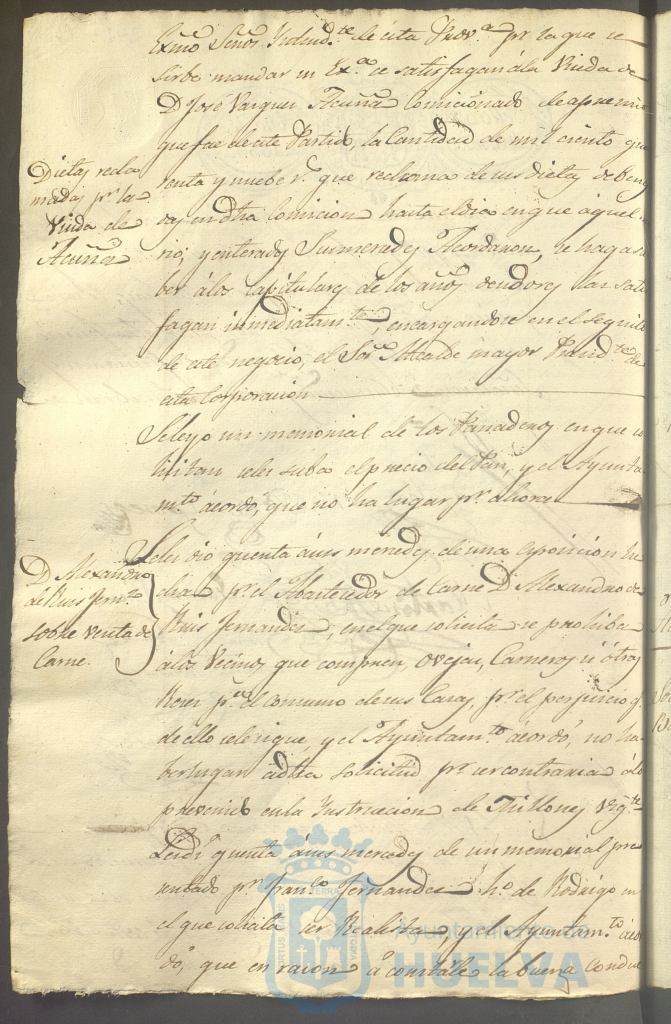 Exmo Señor Yntend.te de ésta Prov.a pr. la que se
sirbe mandar su Ex.a se satisfagan á la Viuda de
D José Vazquez Acuña Comicionado de apremio
que fue de este Partido, la Cantidad de mil ciento qua
renta y nuebe r.s que reclama de sus dietas deben
das en dha Comicion hasta el dia en que aquel
rió; y enterados Sus mercedes Acordaron, se haga sa
ber á los Capitulares de los años deudores las satis
fagan inmediatam.te, encargandose en el seguito
de este negocio, el Sor. Alcalde mayor Presid.te de
esta Corporacion
Dietas recla
madas pr. la
Viuda de
Acuña
Se leyo un memorial de los Panaderos en que so
licitan se les suba el precio del Pan, y el Ayunta
m.to acordó, que no ha lugar pr. ahora
D Alexandro
de Ruis Fern.z
sobre venta de
Carne.
Se les dio quenta á sus mercedes de una esposicion he
cha pr. el Abastecedor de Carne D Alexandro de
Ruis Fernandez, en el que solicita se prohiba
á los Vecinos que compren Ovejas, Carneros ú otras
Reses p.a el consumo de sus Casas, pr. el perjuicio q.
de ello se le sigue, y el Ayuntam.to acordó, no ha
ber lugar á dha solicitud pr. ser contraria á lo
prevenido en la Ynstruccion de Millones Vig.te
Se dió quenta á sus mercedes de un memorial pre
sentado pr. Fran.co Fernandez h.o de Rodrigo en
el que solicita ser Realista, y el Ayuntam.to acor
dó, que en razon á constále la buena conduc
Ayuntamiento de
HUELVA